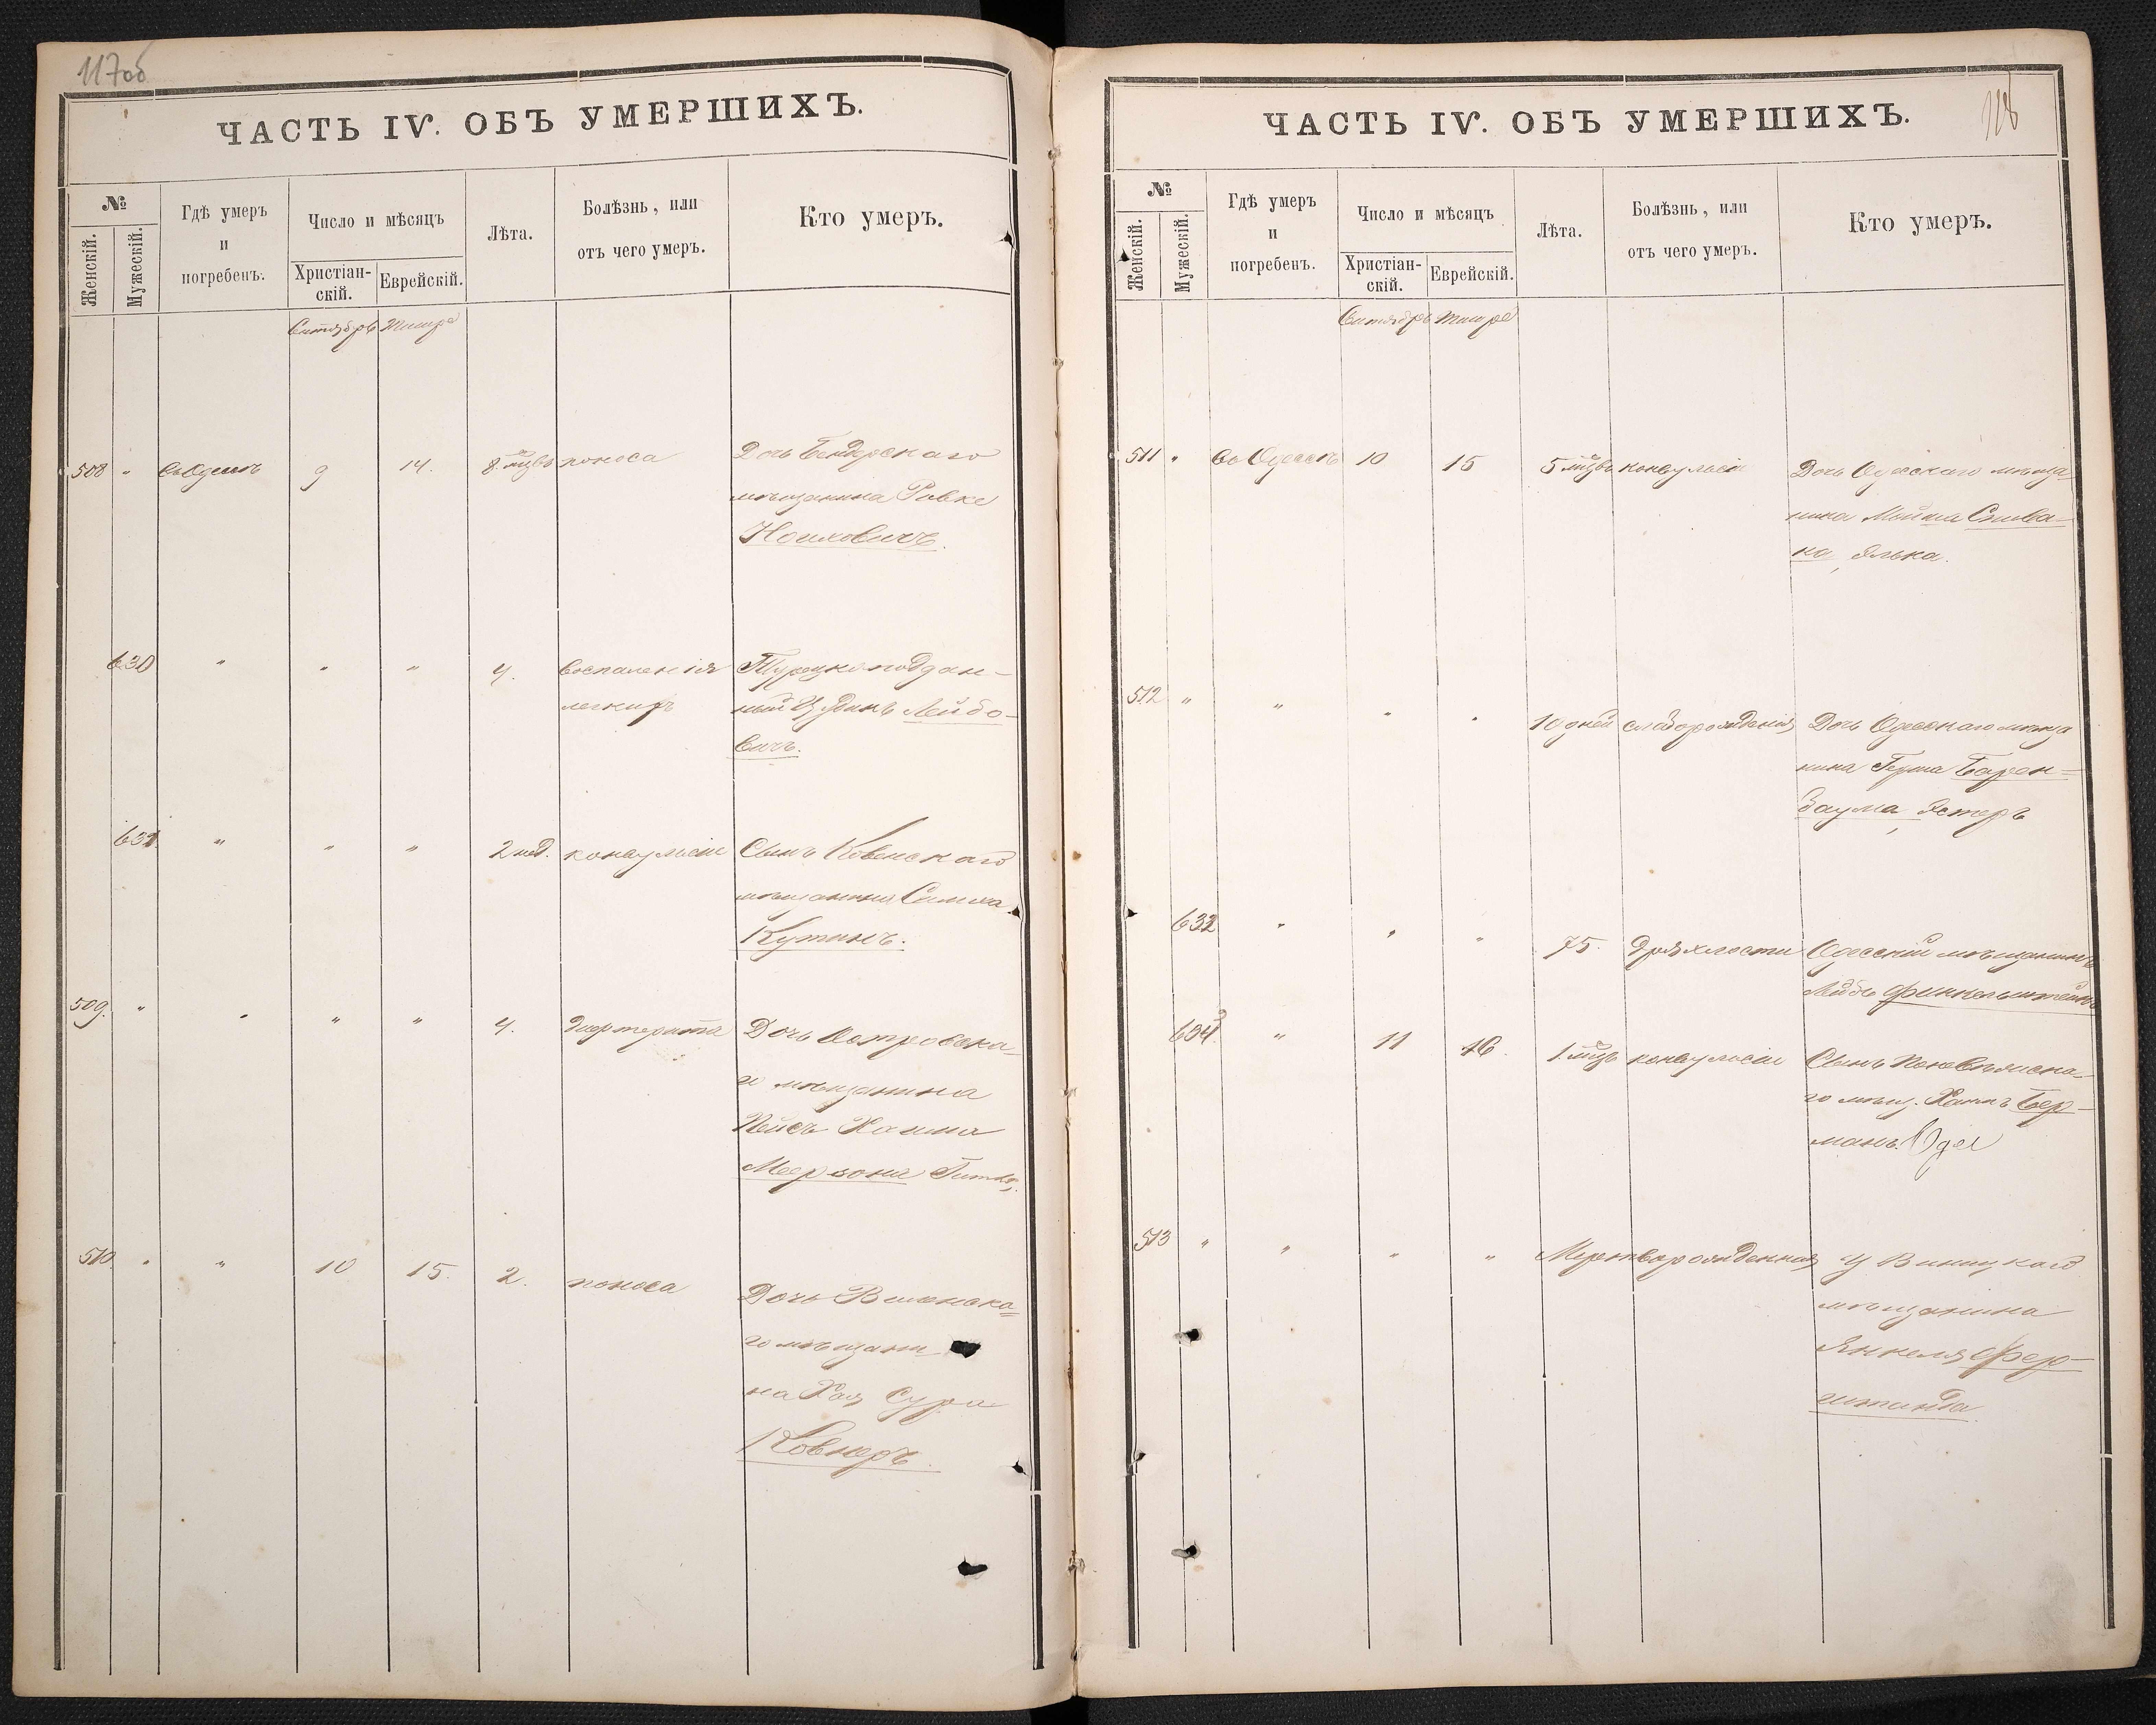 117об
ЧАСТЬ IV. ОБЪ УМЕРШИХЪ.
№
Женскій.
Мужескій.
Гдѣ умеръ
и
погребенъ.
Число и мѣсяцъ
Христіан-
скій.
Еврейскій.
Лѣта.
Болѣзнь, или
отъ чего умеръ.
Кто умеръ.
Сентябрь Тишре
508 " Въ Одессѣ 9 14. 8 мцвъ поноса Дочь Бендерскаго
мѣщанина Ривке
Ноиховичъ.
630 " " " 4. Воспаленія Турецкоподдан-
легкихъ ный Лейбо-
вичъ.
631 " " " 2 нед. конвульсіи Сынъ Ковенскаго
мѣщанина Симха
Кутинъ.
509. " " " " 4. дифтерита Дочь Островска-
го мѣщанина
Пейсъ Хаима
Меерзона Гитля,
510. " " 10 15. 2. поноса Дочь Виленска-
го мѣщани-
на Хая Сура
Ковнеръ.
118
ЧАСТЬ IV. ОБЪ УМЕРШИХЪ.
№
Женскій.
Мужескій.
Гдѣ умеръ
и
погребенъ.
Число и мѣсяцъ
Христіан-
скій.
Еврейскій.
Лѣта.
Болѣзнь, или
отъ чего умеръ.
Кто умеръ.
Сентябрь Тишре
511 " Въ Одессѣ 10 15 5 мцвъ конвульсіи Дочь Одесскаго мѣща-
нина Мойша Спива-
ка, Элька.
512 " " " " 10 дней слаборожденія Дочь Одесскаго мѣща
нина Герша Барен-
баума, Эстеръ
632 " " " 75. Дряхлости Одесскій мѣщанинъ
Лейбъ Финкельштейнъ
633 " 11 16. 1 мцъ конвульсіи Сынъ Поневѣжска-
го мѣщ. Хаимъ Бер-
манъ.
513 " " " " Мертворожденная У Винницкаго
мѣщанина
Янкеля Фер-
штенда.